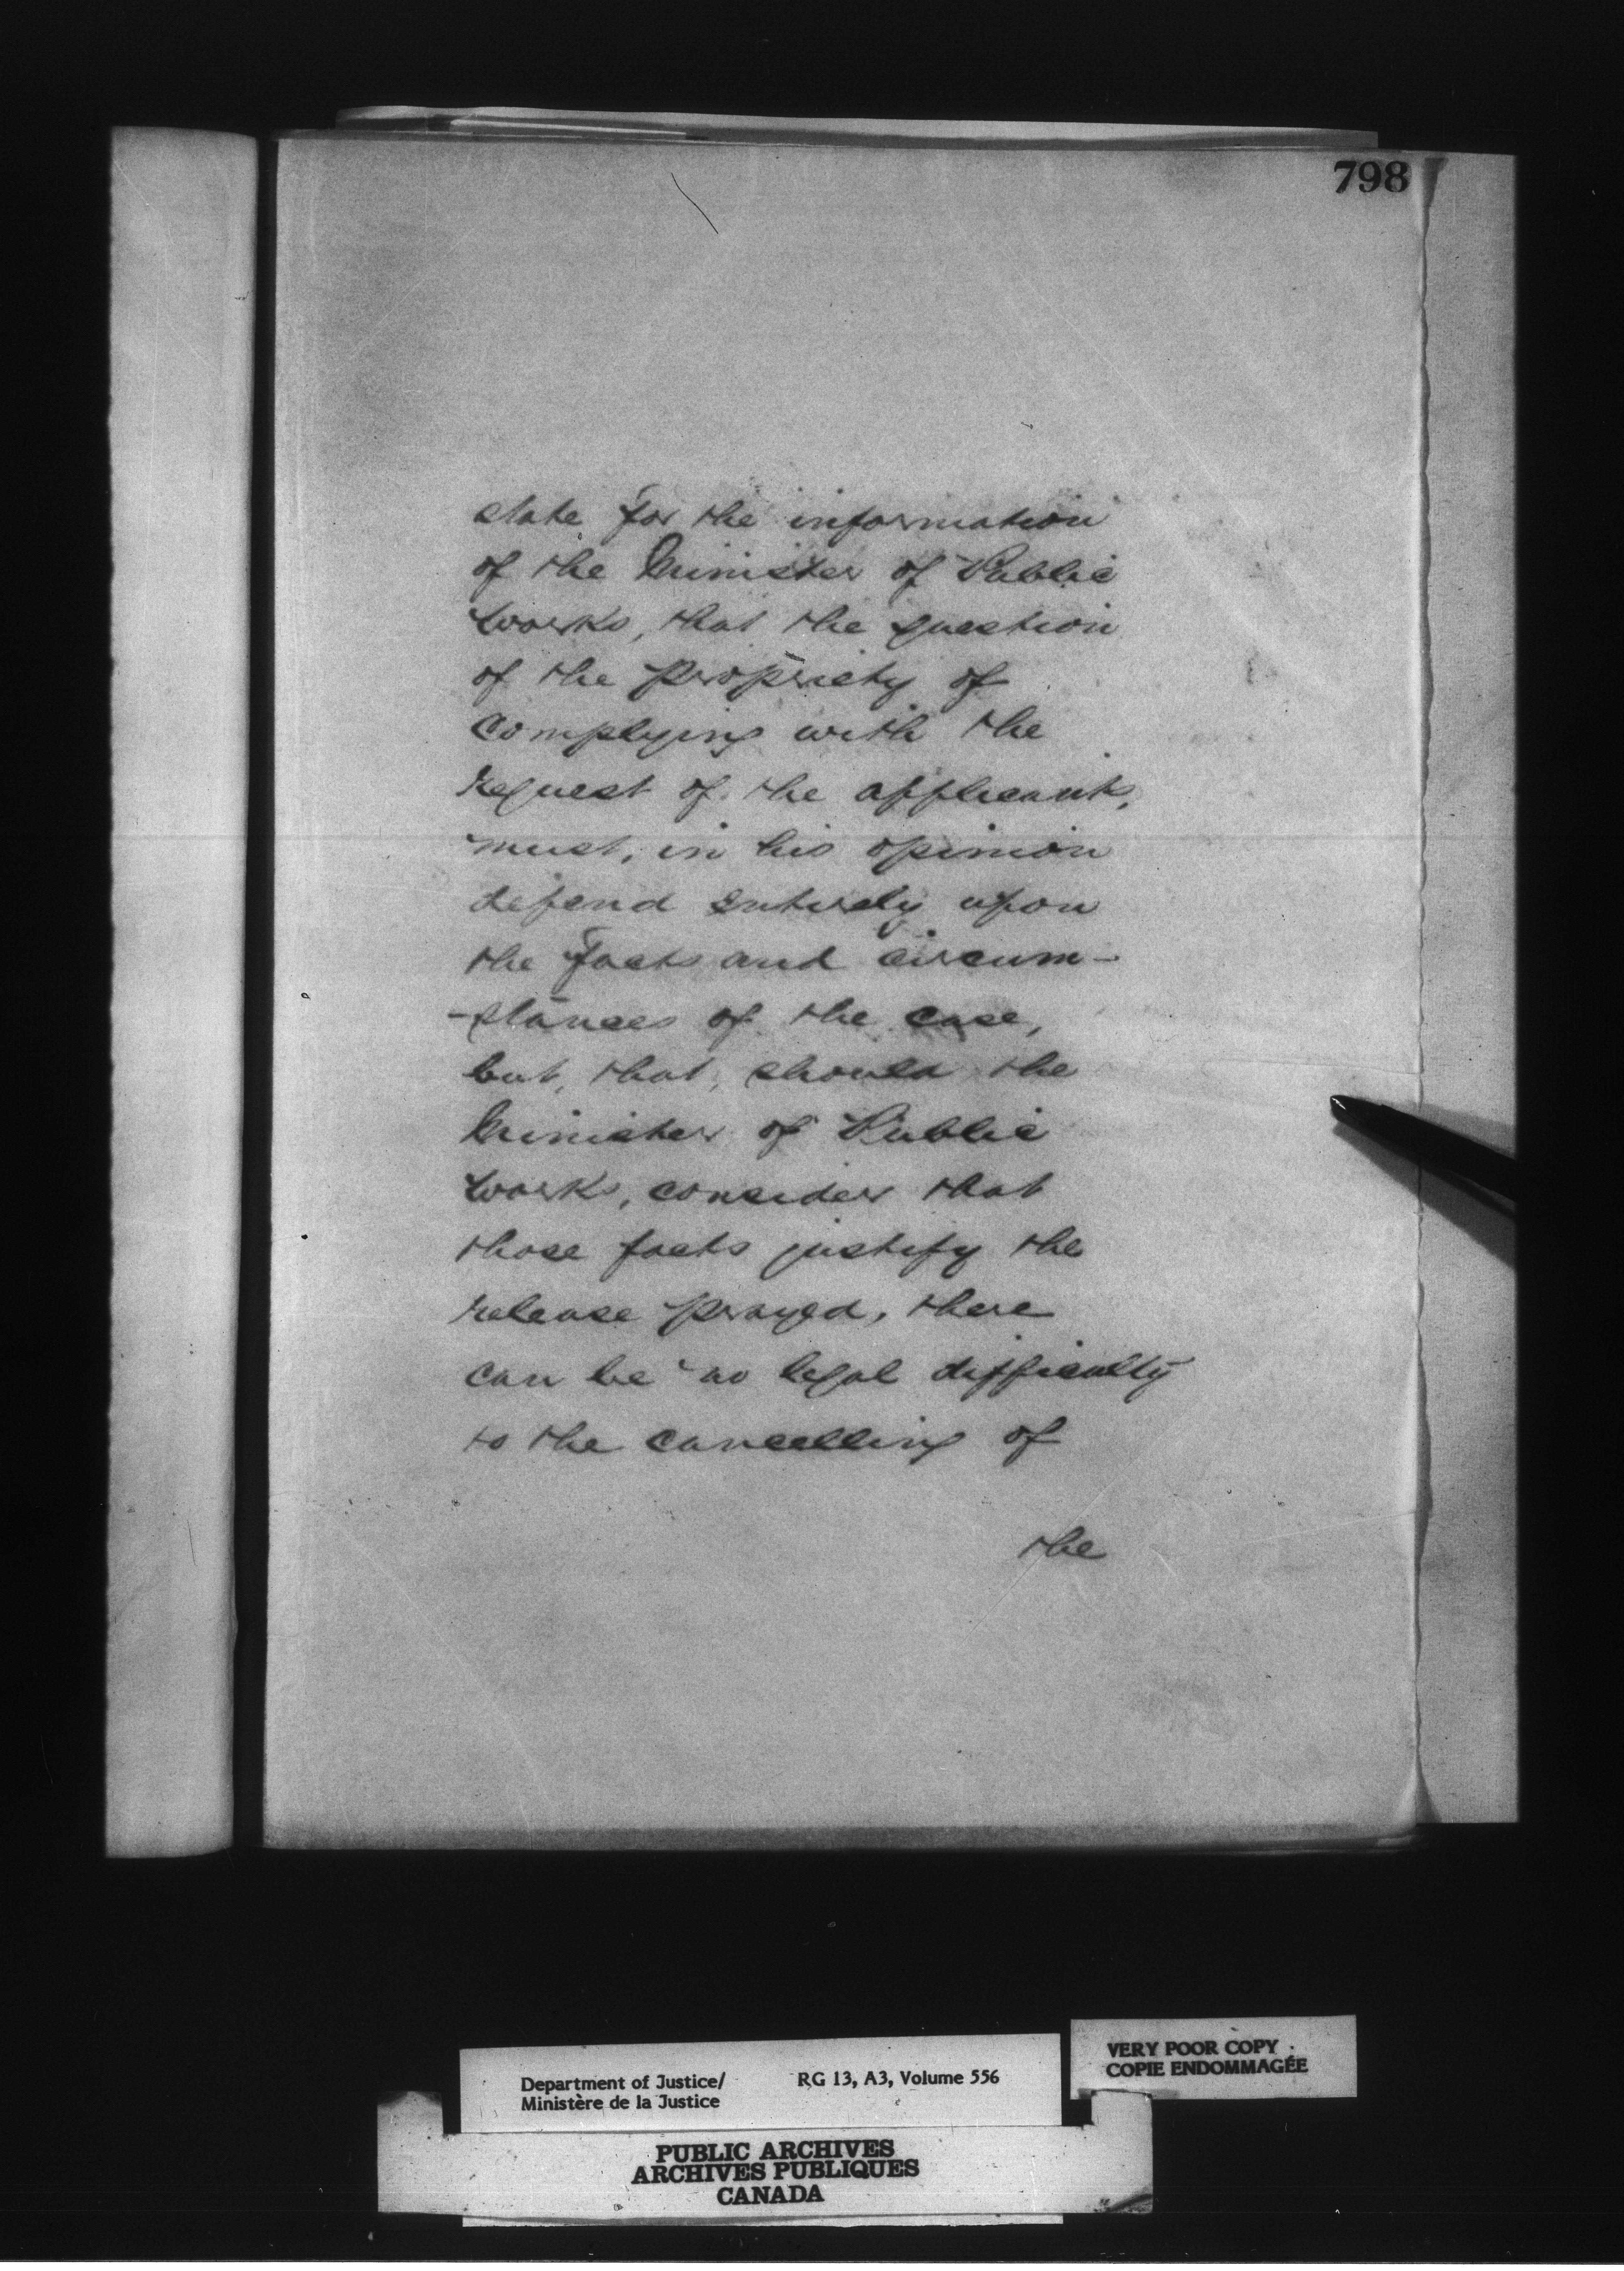 798
state for the information
of the Minister of Public
Works, that the question
of the propriety of
complying with the
request of the applicants,
must, in his opinion
depend entirely upon
the facts and circum-
-stances of the case,
but, that, should the
Minister of Public
Works, consider that
those facts justify the
release prayed, there
can be no legal difficulty
to the cancelling of
the
VERY POOR COPY
COPIE ENDOMMAGÉE
Department of Justice/ RG 13, A3, Volume 556
Ministère de la Justice
PUBLIC ARCHIVES
ARCHIVES PUBLIQUES
CANADA